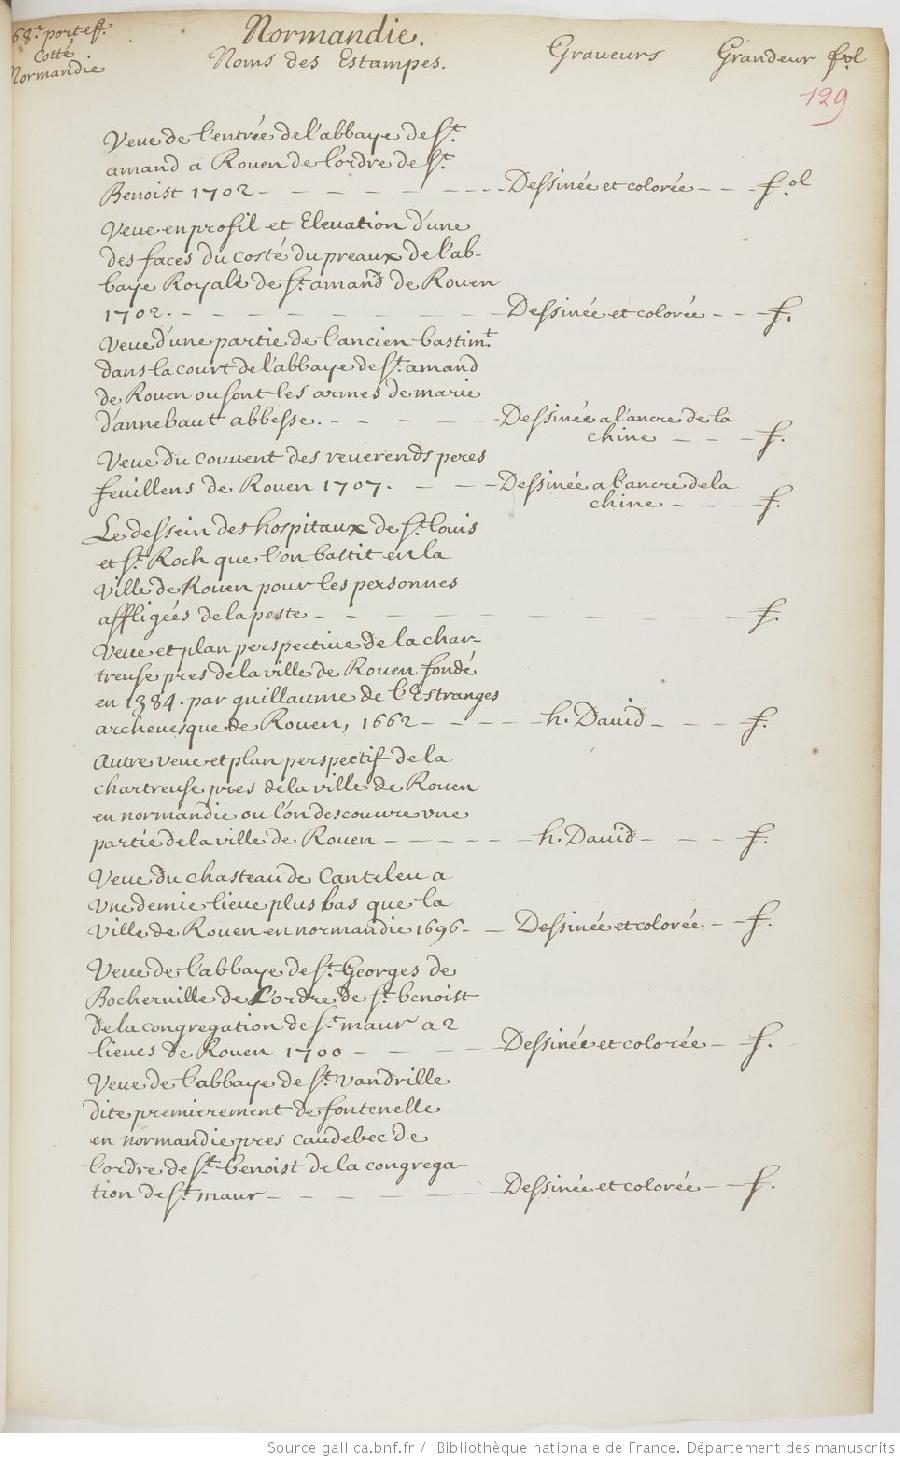 68.e portef.
Cotté
Normandie
Normandie.
Noms des Estampes. Graveurs Grandeur fol
129
Veue de l'entrée de l'abbaye de St.
amand a Rouen de l'ordre de St.
Benoist 1702 - - - - - - - - Dessinée et colorée - - - f.ol
Veue en profil et Elevation d'une
des faces du costé du preaux de l'ab-
baye Royale de St. amand de Rouen
1702. - - - - - - - - Dessinée et colorée - - - f.
Veue d'une partie de l'ancien bastimt.
dans la court de l'abbaye de St. amand
de Rouen ou sont les armes de marie
d'annebaut abbesse. - - - - - Dessinée a l'ancre de la
chine - - - f.
Veue du couvent des reverends peres
feuillens de Rouen 1707. - - - Dessinée a l'ancre de la
chine. - - - f.
Le dessein des hospitaux de St. louis
et St. Roch que l'on bastit en la
ville de Rouen pour les personnes
affligées de la peste - - - - - - - - - f.
Veue et plan perspective de la char-
treuse pres de la ville de Rouen fondé
en 1384. par guillaume de l'Estranges
archevesque de Rouen, 1662 - - - - h. David - - - f.
Autre veue et plan perspectif de la
chartreuse pres de la ville de Rouen
en normandie ou l'on descouvre une
partie de la ville de Rouen - - - - - h. David - - - f.
Veue du chasteau de Canteleu a
une demie lieue plus bas que la
ville de Rouen en normandie 1696 - - Dessinée et colorée - - f.
Veue de l'abbaye de St. Georges de
Bocherville de l'ordre de St. benoist
de la congregation de St. maur a 2
lieues de Rouen 1700 - - - - - Dessinée et colorée - - f.
Veue de l'abbaye de St. Vandrille
dite premierement de fontenelle
en normandie pres caudebec de
l'ordre de St. benoist de la congrega-
tion de St. maur - - - - - - - Dessinée et colorée - - f.
Source gallica.bnf.fr / Bibliothèque nationale de France. Département des manuscrits